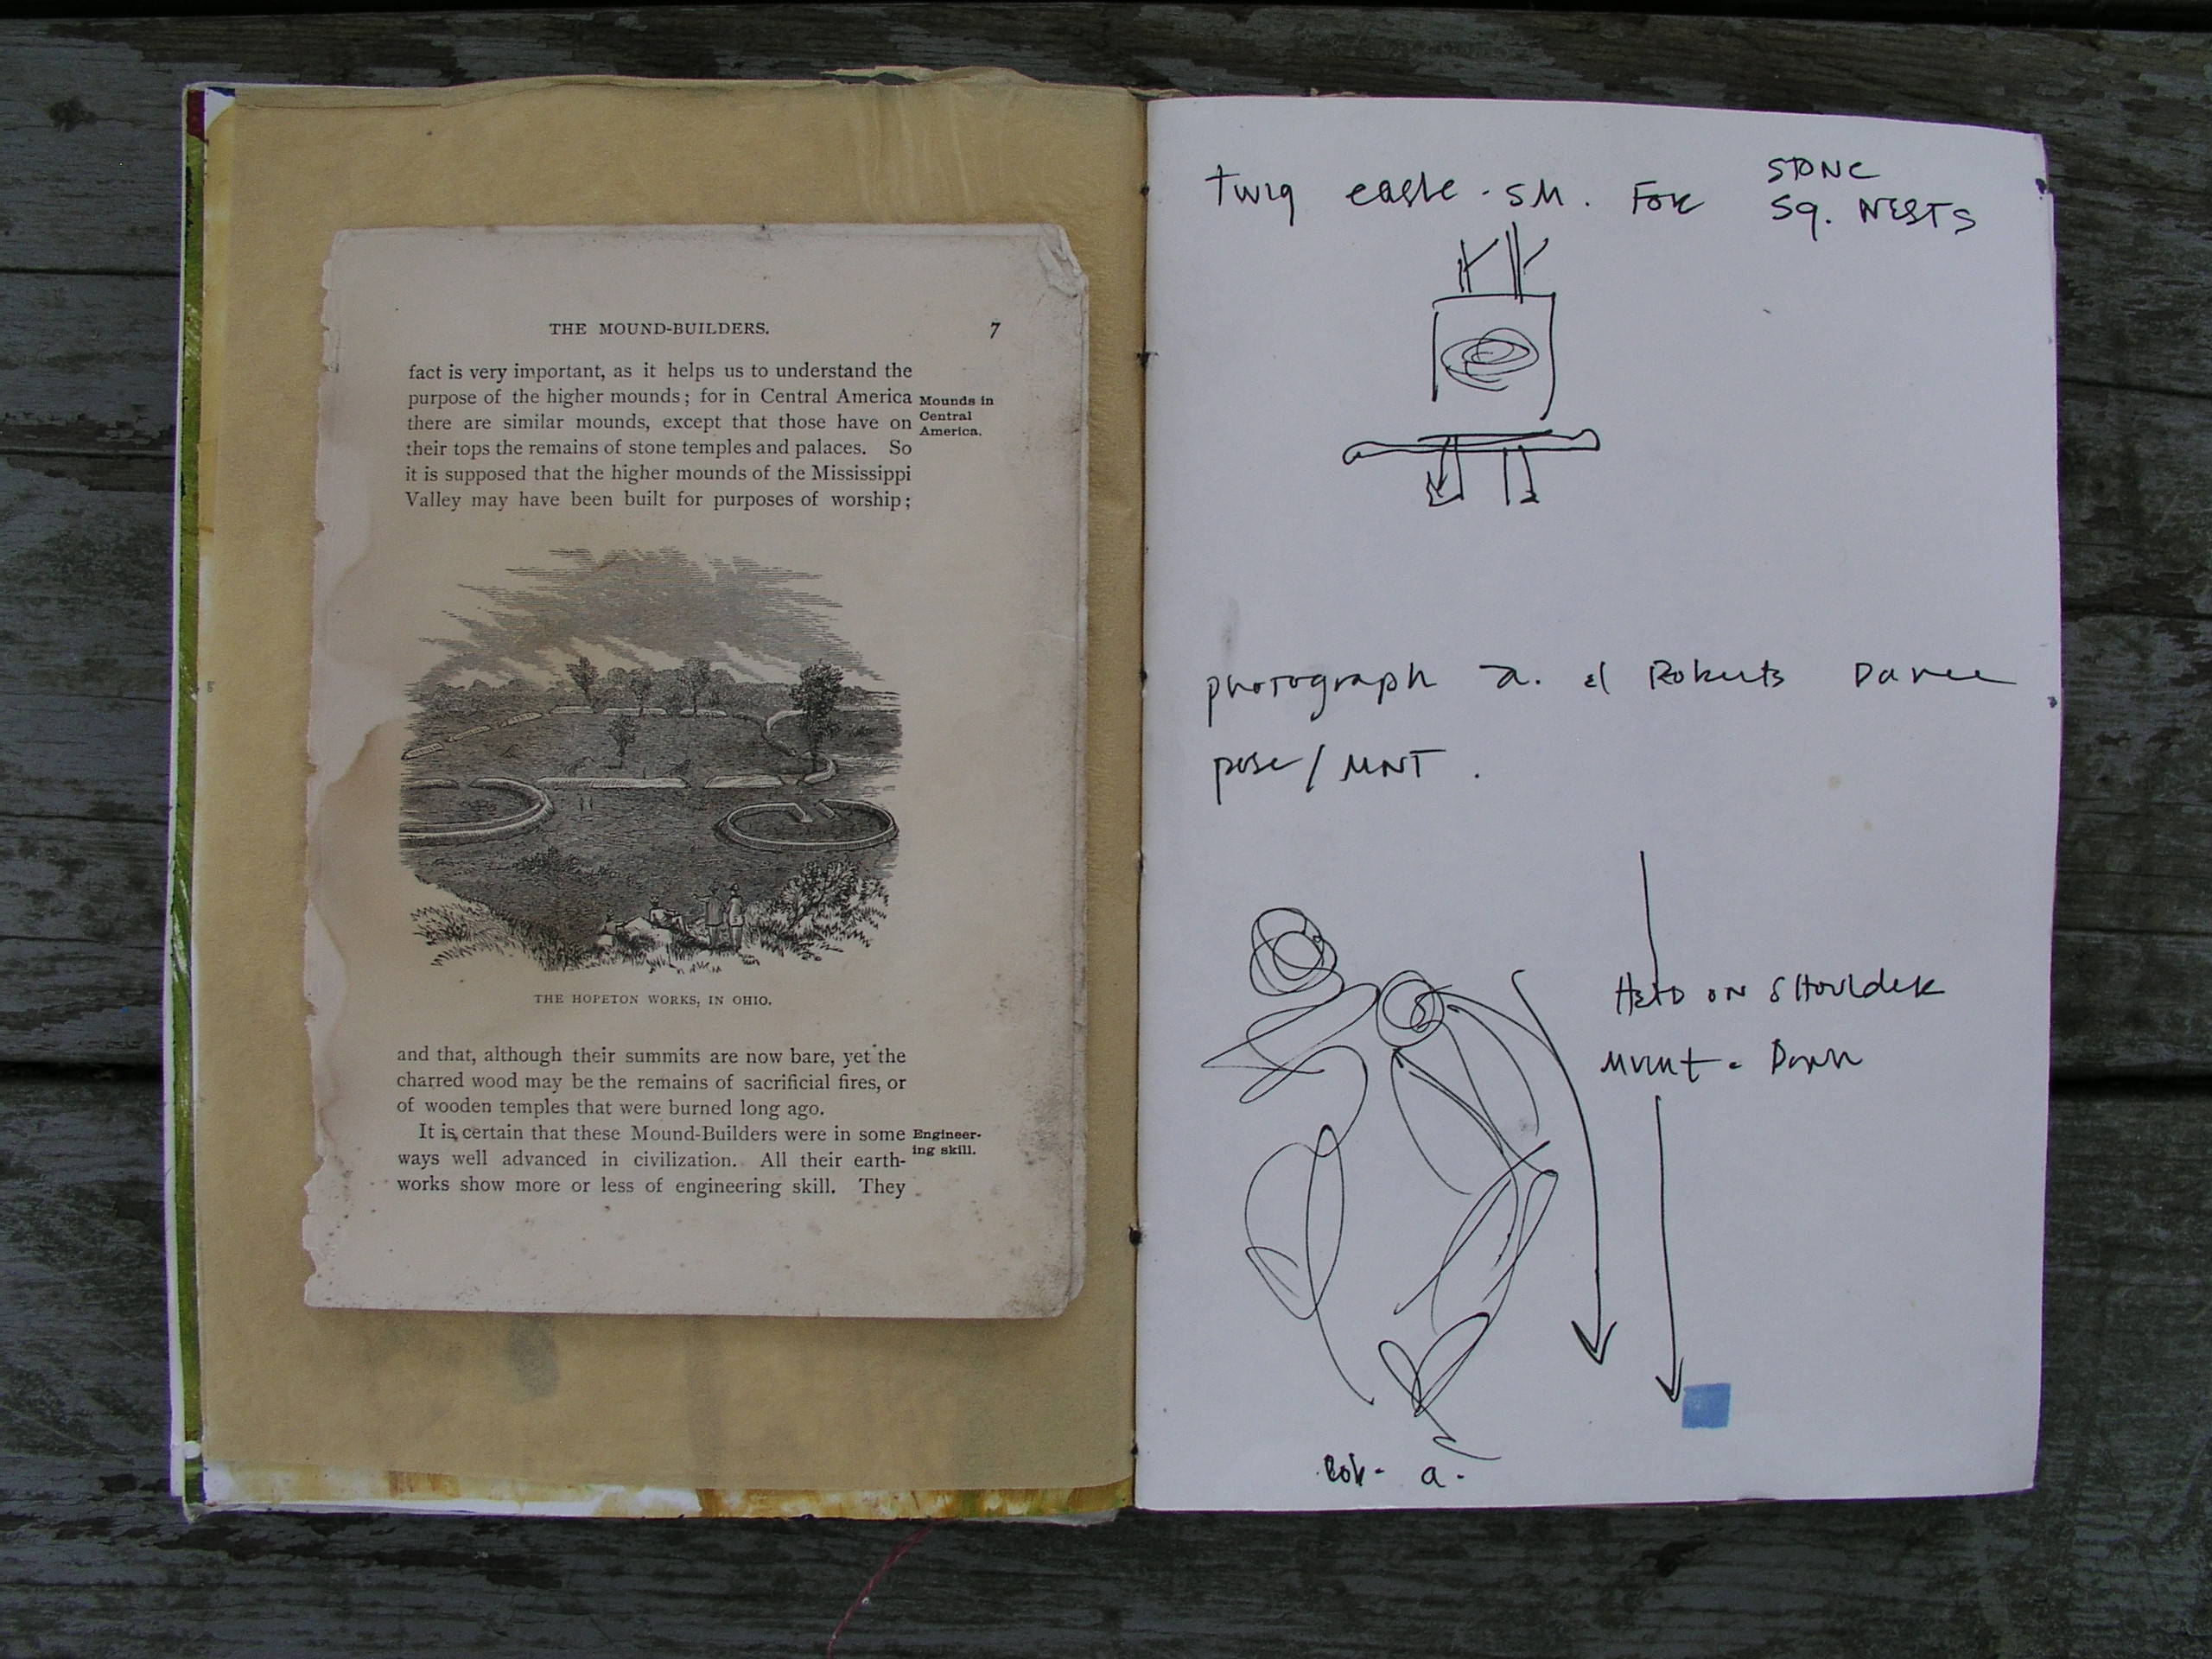 THE MOUND-BUILDERS. 7
fact is very important, as it helps us to understand the
purpose of the higher mounds; for in Central America
there are similar mounds, except that those have on
their tops the remains of stone temples and palaces. So
it is supposed that the higher mounds of the Mississippi
Valley may have been built for purposes of worship;
Mounds in
Central
America.
THE HOPETON WORKS, IN OHIO.
and that, although their summits are now bare, yet the
charred wood may be the remains of sacrificial fires, or
of wooden temples that were burned long ago.
It is certain that these Mound-Builders were in some
ways well advanced in civilization. All their earth-
works show more or less of engineering skill. They
Engineer-
ing skill.
twig easle - SM. FOR STONE
Sq. NESTS
photograph a. Roberts Dance
pose / MNT.
HEAD ON SHOULDER
mount - Down
a.